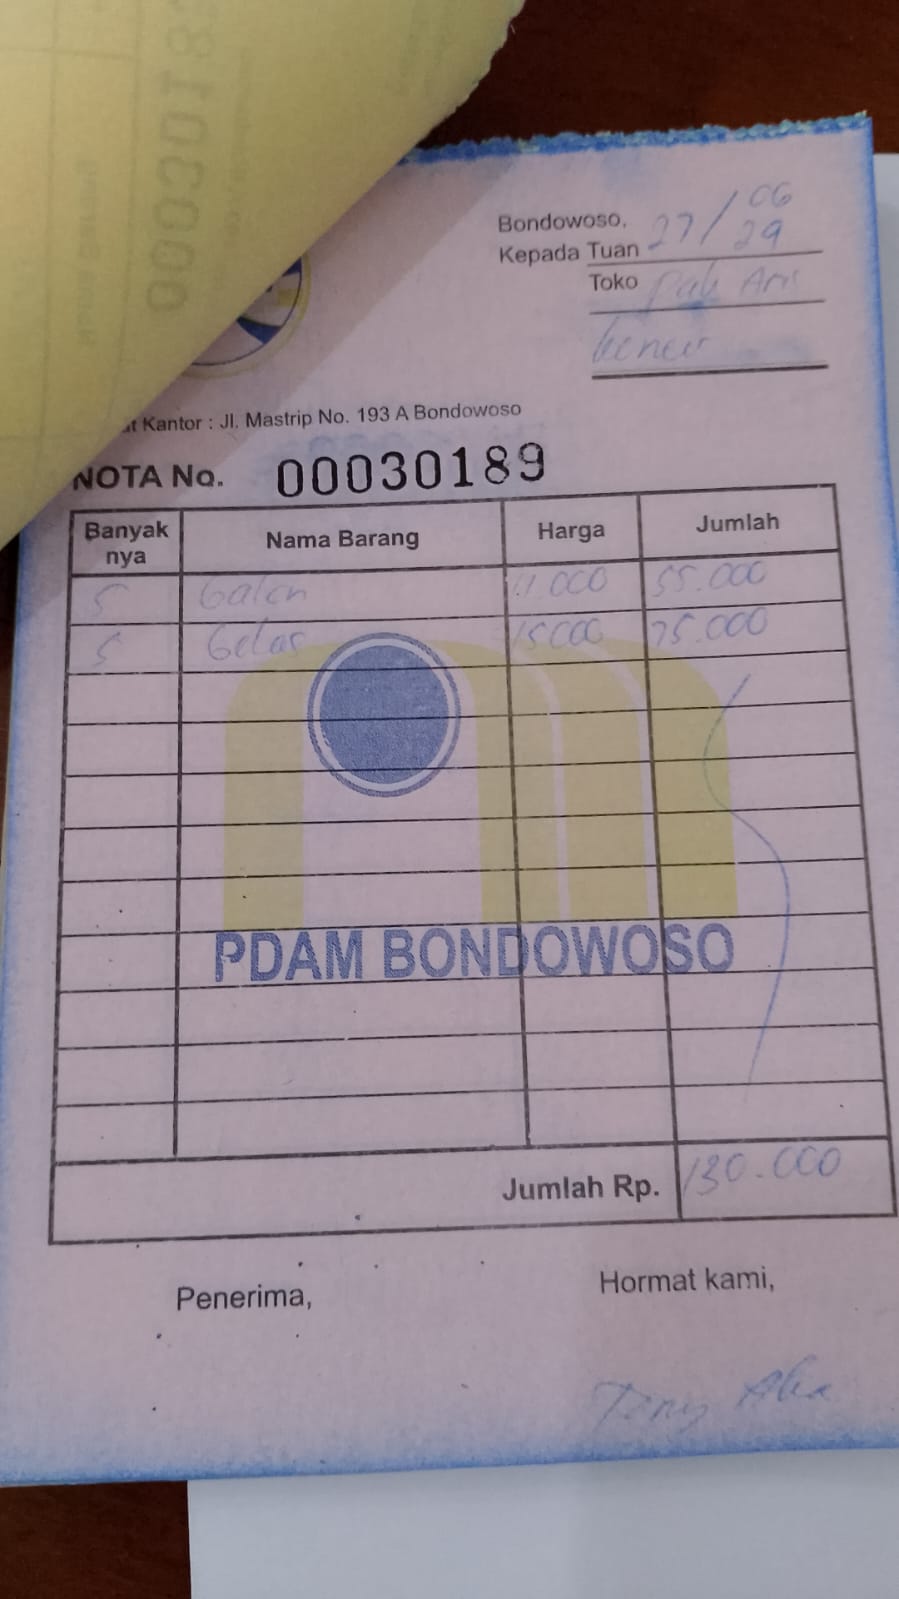 Bondowoso, 27/06
Kepada Tuan 29
Toko pak Aris
Kantor : Jl. Mastrip No. 193 A Bondowoso
NOTA No. 00030189
Banyak nya Nama Barang Harga Jumlah
5 Galon 11.000 55.000
5 Gelas 15000 75.000
PDAM BONDOWOSO
Jumlah Rp. 130.000
Penerima, Hormat kami,
Tony